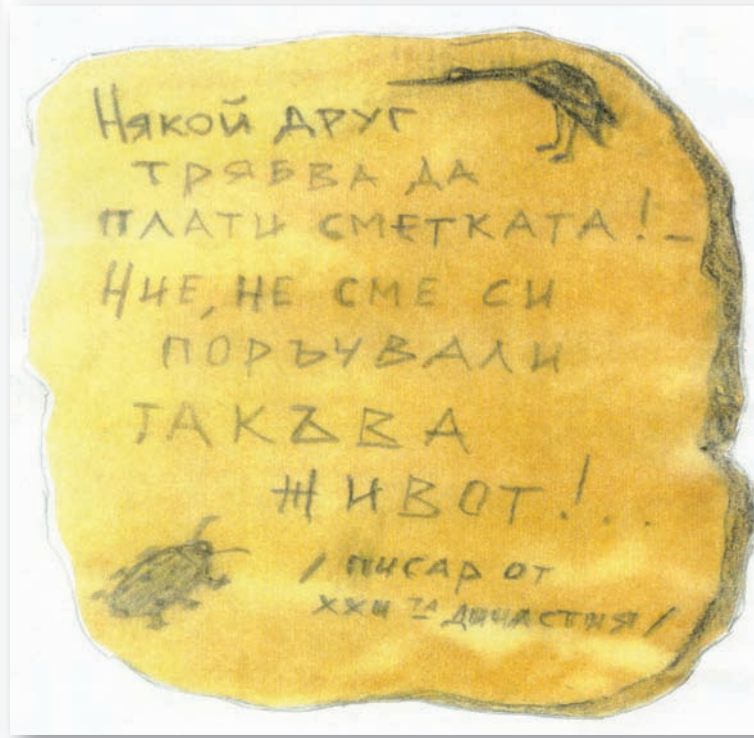 Някой друг
трябва да
плати сметката! –
Ние, не сме си
поръчвали
такъва
живот!..
/ писар от
XXII та династия /